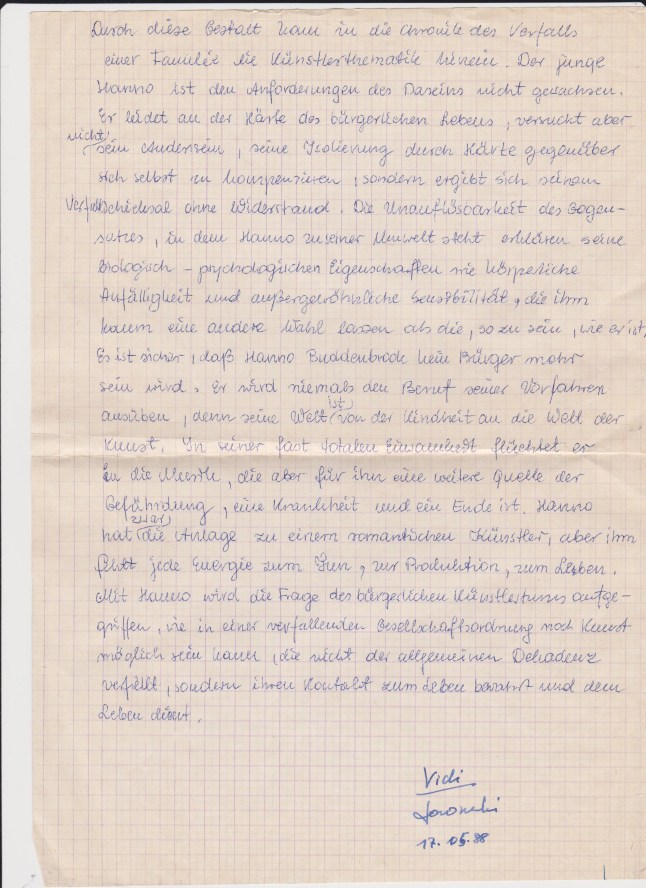 Durch diese Gestalt kam in die Chronik des Verfalls
einer Familie die Künstlerthematik hinein. Der junge
Hanno ist den Anforderungen des Daseins nicht gewachsen.
Er leidet an der Härte des bürgerlichen Lebens, versucht aber
nicht
sein Anderssein, seine Isolierung durch Härte gegenüber
sich selbst zu kompensieren, sondern ergibt sich seinem
Verfallschicksal ohne Widerstand. Die Unauflösbarkeit des Gegen-
satzes, in dem Hanno zu seiner Umwelt steht erklären seine
biologisch - psychologischen Eigenschaften wie körperliche
Anfälligkeit und außergewöhnliche Sensibilität, die ihm
kaum eine andere Wahl lassen als die, so zu sein, wie er ist,
Es ist sicher, daß Hanno Buddenbrook kein Bürger mehr
sein wird. Er wird niemals den Beruf seiner Vorfahren
ist
ausüben, denn seine Welt von der Kindheit an die Welt der
Kunst. In seiner fast totalen Einsamkeit flüchtet er
in die Musik, die aber für ihn eine weitere Quelle der
Gefährdung, eine Krankheit und ein Ende ist. Hanno
zwar
hat die Anlage zu einem romantischen Künstler, aber ihm
fehlt jede Energie zum Tun, zur Produktion, zum Leben.
Mit Hanno wird die Frage des bürgerlichen Künstlertums aufge-
griffen, wie in einer verfallenden Gesellschaftsordnung noch Kunst
möglich sein kann, die nicht der allgemeinen Dekadenz
verfällt, sondern ihren Kontakt zum Leben bewahrt und dem
Leben dient.
Vidi
17.05.88